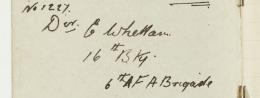 No 1227.
Dvr. E Whelan.
16th Bty.
6th A F A Brigade